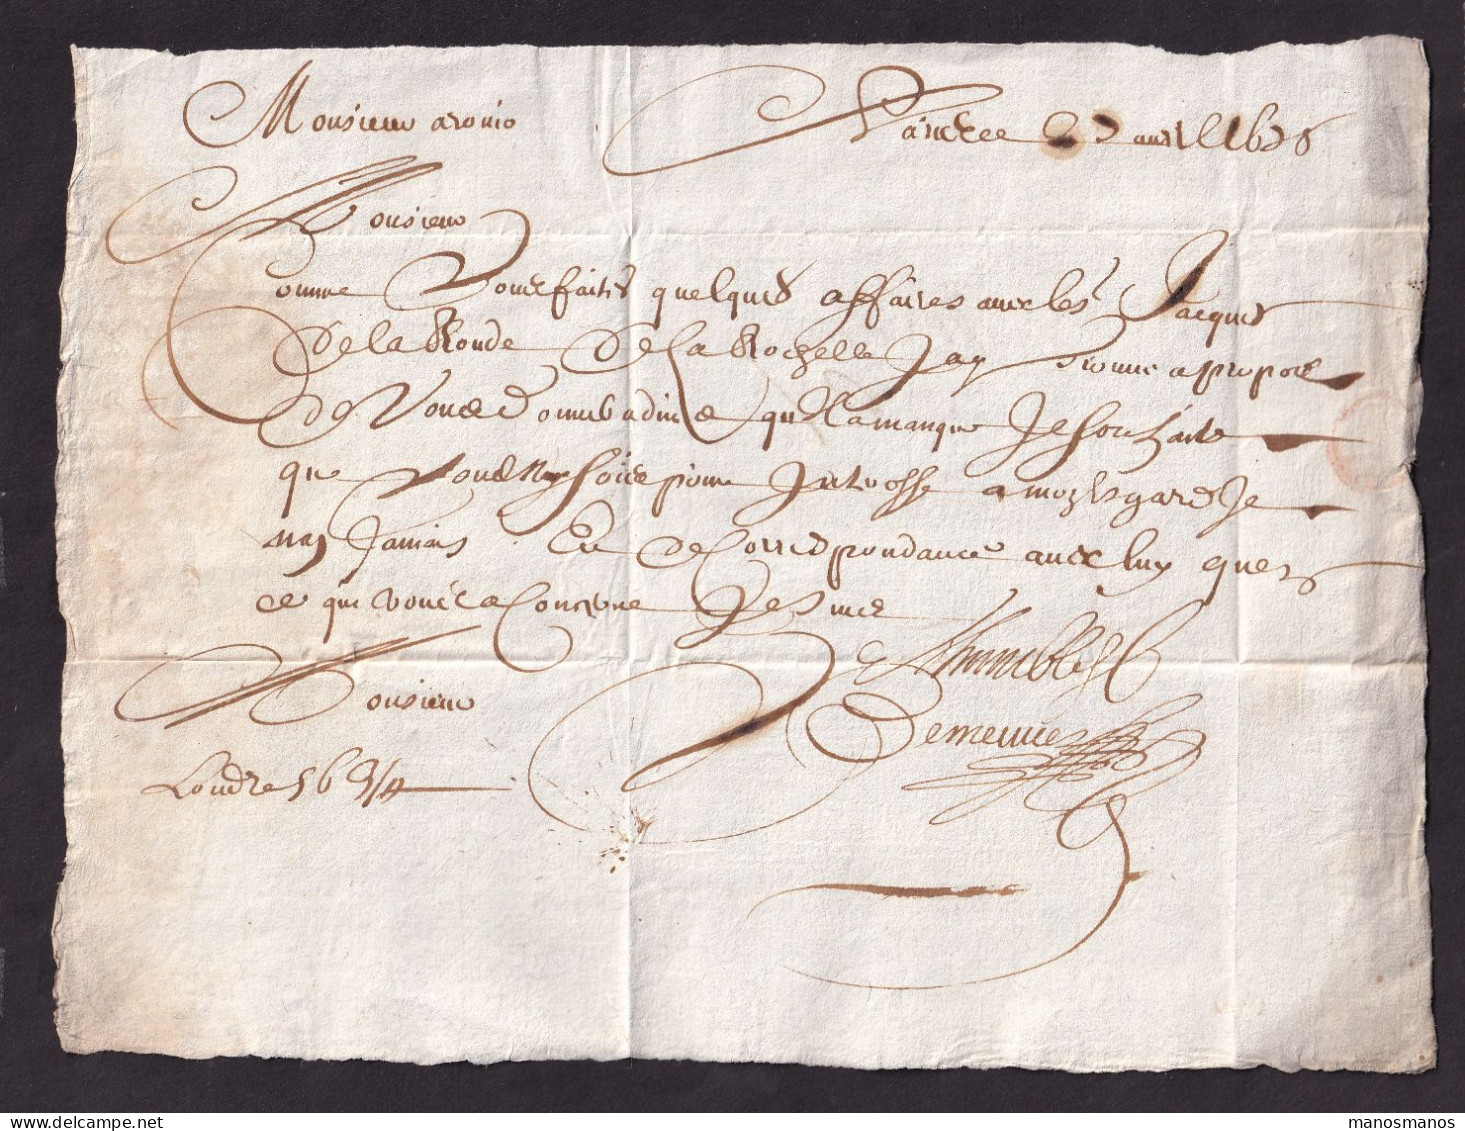 Monsieur aronio
avril 1676
Monsieur
Comme Vous faites quelques affaires avec le sr Jacques
De la Ronde De la Rochelle Jay trouve a propos
De Vous Donner advis quil a manque Je souhaite
que Vous Ny soies point Jnteresse a mon Esgard Je
nay Jamais Eu De Correspondance avec luy
ce qui vous a Concerne Je Suis
Monsieur
humble
Londre 56 3/4
manosmanos.com